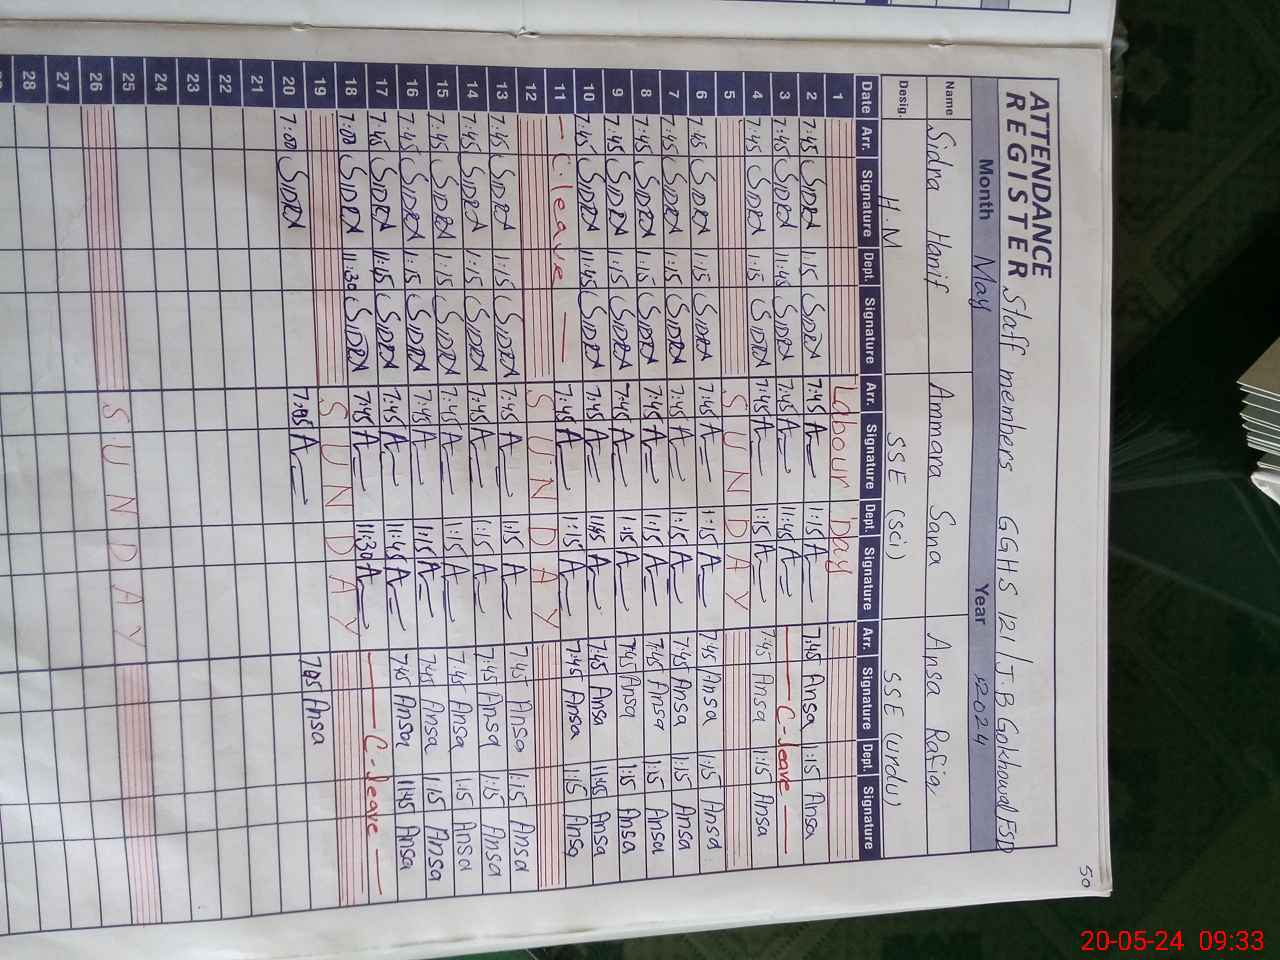 50
ATTENDANCE REGISTER Staff members GGHS 121/J.B Gokhowal FSD
Month May Year 2024
Name Sidra Hanif Ammara Sana Ansa Rafiq
Desig. H.M SSE (Sci) SSE (Urdu)
Date Arr. Signature Dept. Signature Arr. Signature Dept. Signature Arr. Signature Dept. Signature
1 Labour Day
2 7:45 SIDRA 1:15 SIDRA 7:45 A 1:15 A 7:45 Ansa 1:15 Ansa
3 7:45 SIDRA 11:45 SIDRA 7:45 A 11:45 A C-leave
4 7:45 SIDRA 1:15 SIDRA 7:45 A 1:15 A 7:45 Ansa 1:15 Ansa
5 SUNDAY
6 7:45 SIDRA 1:15 SIDRA 7:45 A 1:15 A 7:45 Ansa 1:15 Ansa
7 7:45 SIDRA 1:15 SIDRA 7:45 A 1:15 A 7:45 Ansa 1:15 Ansa
8 7:45 SIDRA 1:15 SIDRA 7:45 A 1:15 A 7:45 Ansa 1:15 Ansa
9 7:45 SIDRA 1:15 SIDRA 7:45 A 1:15 A 7:45 Ansa 1:15 Ansa
10 7:45 SIDRA 11:45 SIDRA 7:45 A 11:45 A 7:45 Ansa 11:45 Ansa
11 C-leave 7:45 A 1:15 A 7:45 Ansa 1:15 Ansa
12 SUNDAY
13 7:45 SIDRA 1:15 SIDRA 7:45 A 1:15 A 7:45 Ansa 1:15 Ansa
14 7:45 SIDRA 1:15 SIDRA 7:45 A 1:15 A 7:45 Ansa 1:15 Ansa
15 7:45 SIDRA 1:15 SIDRA 7:45 A 1:15 A 7:45 Ansa 1:15 Ansa
16 7:45 SIDRA 1:15 SIDRA 7:45 A 1:15 A 7:45 Ansa 1:15 Ansa
17 7:45 SIDRA 11:45 SIDRA 7:45 A 11:45 A 7:45 Ansa 11:45 Ansa
18 7:00 SIDRA 11:30 SIDRA 7:45 A 11:30 A C-leave
19 SUNDAY
20 7:00 SIDRA A Ansa
21
22
23
24
25
26 SUNDAY
27
28
20-05-24 09:33